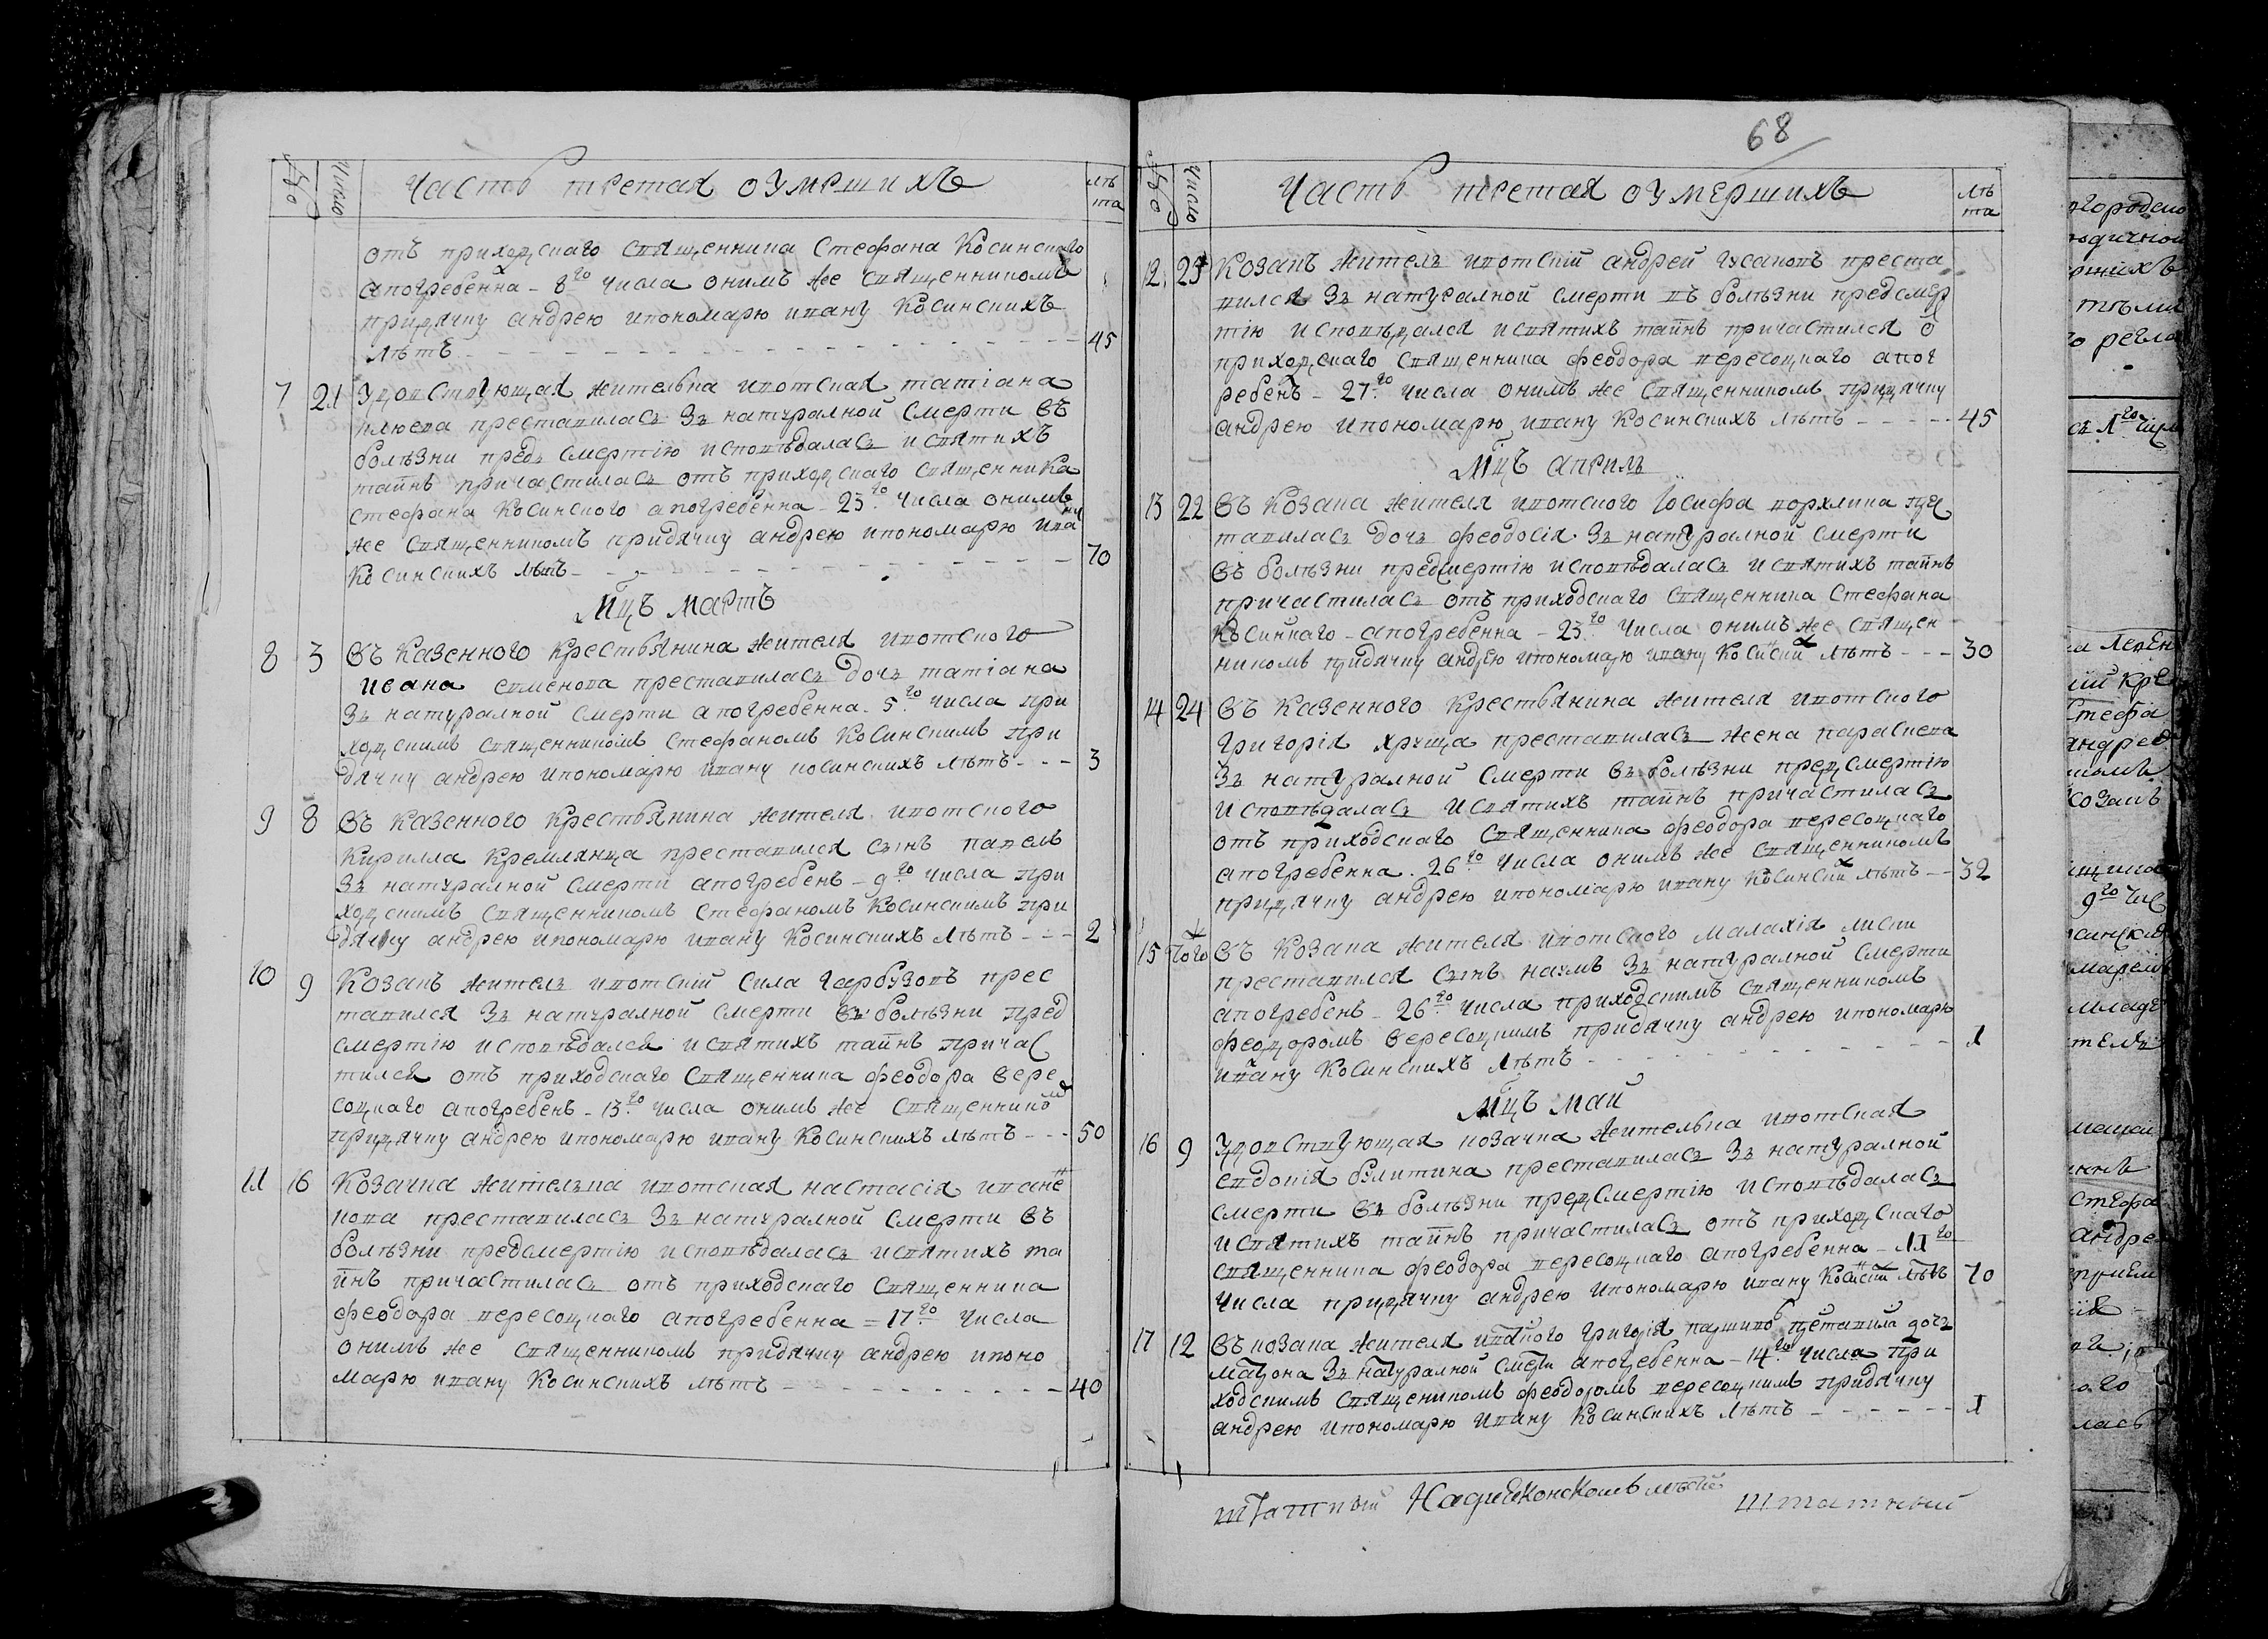 Число
Часть третая оумершихъ
лѣ
та
отъ приходскаго священника Стефана Косинского
апогребенна – 8го числа онимъ же священникомъ
придячку андрею ипономарю ивану Косинскихъ
лѣтъ 45
7 21 Удовствующая жителька ивотская татіана
престапиласъ Зъ натуралной смерти Въ
болѣзни предъ смертію исповѣдаласъ исвятихъ
тайнъ причастиласъ отъ приходскаго священника
Стефана Косинского апогребенна 23го числа онимъ
же священникомъ придячку андрею ипономарю ива
ну
Косинскихъ лѣтъ 70
Мцъ Мартъ
8 3 Въ Казенного Крестьянина жителя ивотского
ивана семенова преставиласъ дочъ татіана
Зъ натуралной смерти апогребенна 5го числа при
ходскимъ священникомъ Стефаномъ Косинскимъ при
дячку андрею ипономарю ивану косинскихъ лѣтъ 3
9 8 Въ Казенного Крестьянина жителя ивотского
Кирилла Кремлянца преставился сынъ павелъ
Зъ натуралной смерти апогребенъ – 9го числа при
ходскимъ священникомъ Стефаномъ Косинскимъ при
дячку андрею ипономарю ивану Косинскихъ лѣтъ 2
10 9 Козакъ жителъ ивотскій Сила гарбузовъ прес
тавился Зъ натуралной смерти Въ болѣзни пред
смертію исповѣдался исвятихъ тайнъ причас
тился отъ приходскаго священника феодора Вере
соцкаго апогребенъ – 13го числа онимъ же священнико
мъ
придячку андрею ипономарю ивану Косинскихъ лѣтъ 50
11 16 Козачка жителъка ивотская настасія иване
нкова преставиласъ Зъ натуралной смерти Въ
болѣзни предсмертію исповѣдаласъ исвятихъ та
йнъ причастиласъ отъ приходскаго священника
феодора вересоцкаго апогребенна = 17го числа
онимъ же священникомъ придячку андрею ипоно
марю ивану Косинскихъ лѣтъ 40
68
Число
Часть третая оумершихъ
лѣ
та
12 25 Козакъ жителъ ивотскій андрей гусаковъ преста
вился Зъ натуралной смерти въ болѣзни предсмер
тію исповѣдался исвятихъ тайнъ причастился ѿ
приходскаго священника феодора вересоцкаго апог
ребенъ – 27го числа онимъ же священникомъ придячку
андрею ипономарю ивану Косинскихъ лѣтъ 45
Мцъ априлъ
13 22 Въ Козака жителя ивотского Іосифа
ставиласъ дочъ феодосія Зъ натуралной смерти
Въ болѣзни предсмертію исповѣдаласъ исвятихъ тайнъ
причастиласъ отъ приходскаго священника Стефана
Косинскаго – апогребенна – 23го числа онимъ же священ
никомъ придячку андрею ипономарю ивану Косинских лѣтъ 30
14 24 Въ Казенного Крестьянина жителя ивотского
григорія хруща преставиласъ жена параскева
Зъ натуралной смерти Въ болѣзни предсмертію
исповѣдаласъ исвятихъ тайнъ причастиласъ
отъ приходскаго священника феодора вересоцкаго
апогребенна 26го числа онимъ же священникомъ
придячку андрею ипономарю ивану Косинских лѣтъ 32
15 Того Въ Козака жителя ивотского Малахія
преставился сынъ наумъ Зъ натуралной смерти
апогребенъ – 26го числа приходскимъ священникомъ
феодоромъ Вересоцкимъ придячку андрею ипономарю
ивану Косинскихъ лѣтъ 1
Мцъ Май
16 9 Удовствующая козачка жителька ивотская
евдокія преставиласъ Зъ натуралной
смерти Въ болѣзни предсмертію исповѣдаласъ
исвятихъ тайнъ причастиласъ отъ приходскаго
священника феодора вересоцкаго апогребенна – 11го
числа придячку андрею ипономарю ивану Косинских лѣтъ 70
17 12 Въ козака жителя ивоцкого григорія преставила дочъ
матрона Зъ натуралной смерти апогребенна – 14го числа при
ходскимъ священикомъ феодоромъ вересоцкимъ придячку
андрею ипономарю ивану Косинскихъ лѣтъ 1
штатный
штатный